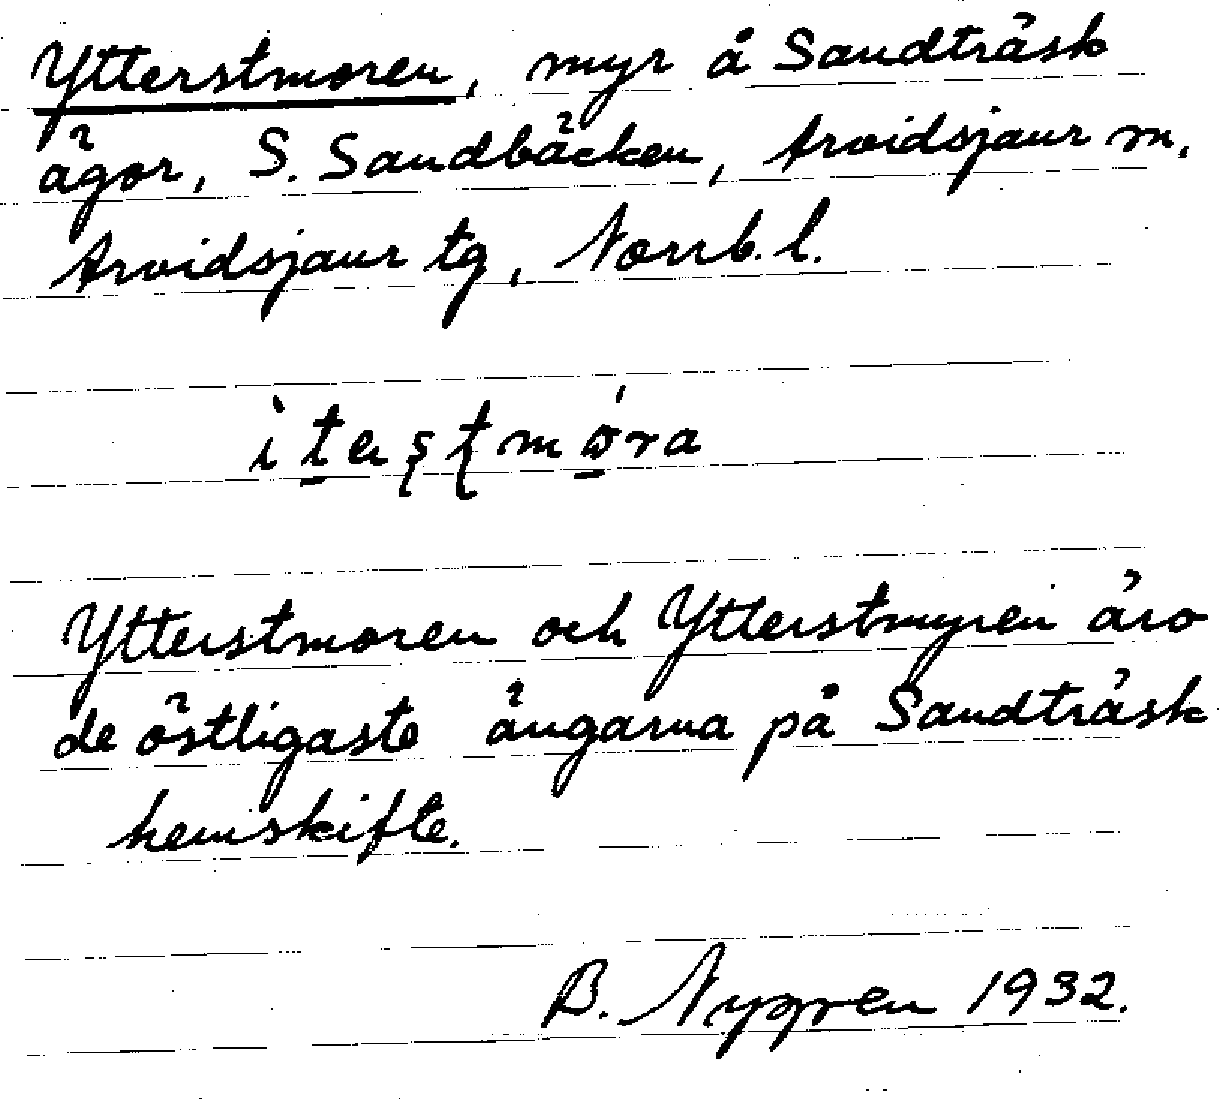 Ytterstmoren, myr å Sandträsk
ägor, S. Sandbäcken, Arvidsjaur sn,
Arvidsjaur tg, Norrb. l.
Ytterstmoren och Ytterstmyren äro
de östligaste ängarna på Sandträsk
hemskifte.
B. Nygren 1932.